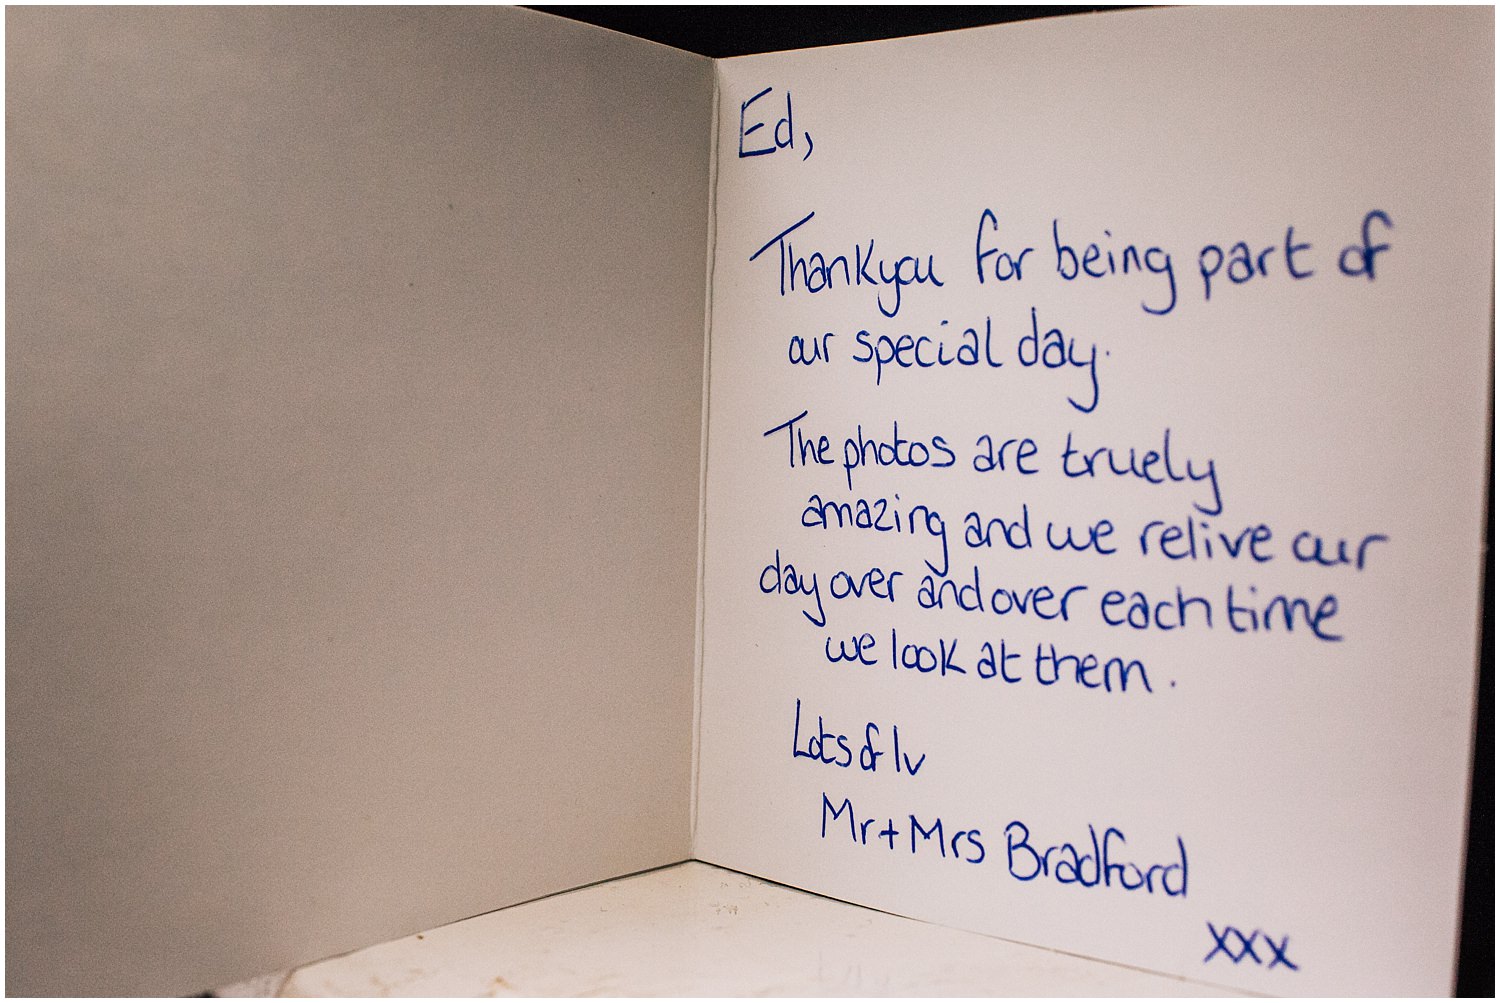 Ed,
Thankyou for being part of
our special day.
The photos are truely
amazing and we relive our
day over and over each time
we look at them.
Lots of lv
Mr + Mrs Bradford
xxx